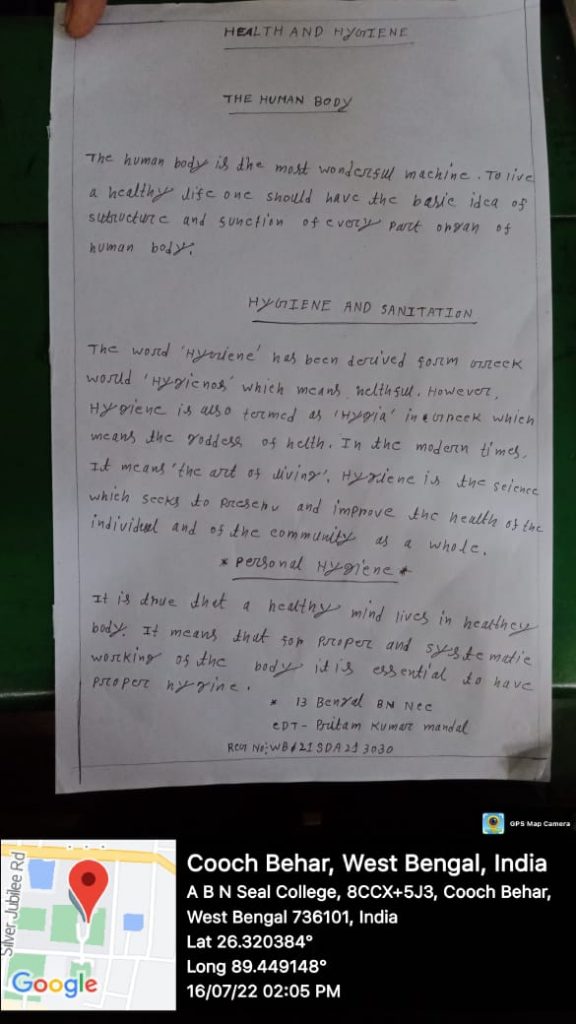 HEALTH AND HYGIENE
THE HUMAN BODY
The human body is the most wonderful machine. To live
a healthy life one should have the basic idea of
sutructure and function of every part organ of
human body.
HYGIENE AND SANITATION
The word 'Hygiene' has been derived form Greek
world 'Hygienos' which means helthful. However,
Hygiene is also termed as 'Hygia' in Greek which
means the goddess of helth. In the modern times,
It means 'the art of living'. Hygiene is the science
which seeks to preserv and improve the health of the
individual and of the community as a whole.
* Personal Hygiene *
It is true that a healthy mind lives in healthey
body. It means that for proper and systematic
working of the body it is essential to have
proper hygine.
* 13 Bengal BN Ncc
CDT- Pritam Kumar mandal
REGI NO:WB/21SDA213030
GPS Map Camera
Silver Jubilee Rd
Google
Cooch Behar, West Bengal, India
A B N Seal College, 8CCX+5J3, Cooch Behar,
West Bengal 736101, India
Lat 26.320384°
Long 89.449148°
16/07/22 02:05 PM